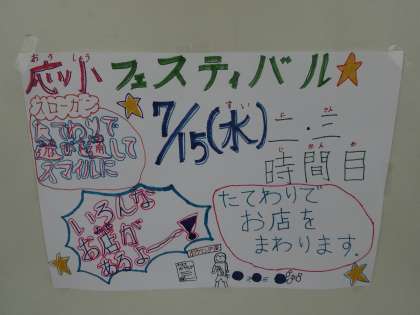 おうしょう
応小フェスティバル
7/15(水)
すい
二・三
に さん
時間目
じ かん め
スローガン
たてわりで
して
スマイルに
いろんな
お店が
あるよー！
たてわりで
お店を
まわります。